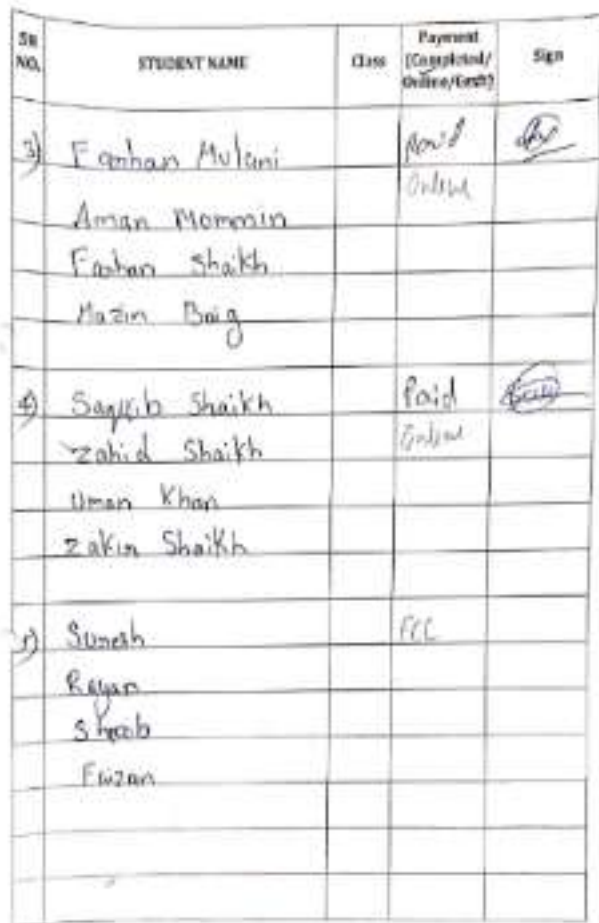 SR NO. STUDENT NAME Class Payment (Completed/ Online/Cash) Sign
3) Farhan Mulani Paid
Online
Aman Mommin
Farhan Shaikh
Mazin Baig
4) Saquib Shaikh Paid
Zahid Shaikh Online
Umar Khan
Zakir Shaikh
Suresh
Rayan
Faizan